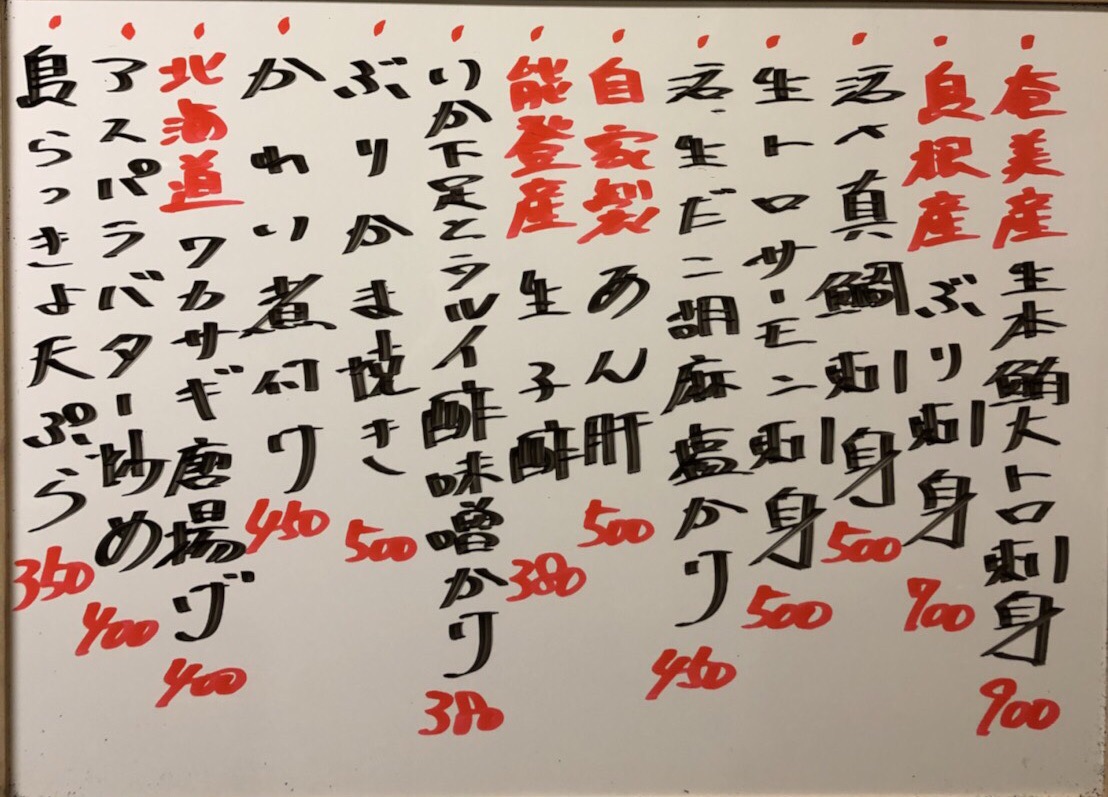 奄美産 生本鮪大トロ刺身 900
島根産 ぶり刺身 700
活〆真鯛刺身 500
生トロサーモン刺身 500
活・生だこ胡麻塩かり 450
自家製 あん肝 500
能登産 生子酢 380
いか下足とラルイ酢味噌かり 380
ぶりかま焼き 500
かれい煮付け 450
北海道 ワカサギ唐揚げ 400
アスパラバター炒め 400
島らっきょ天ぷら 350